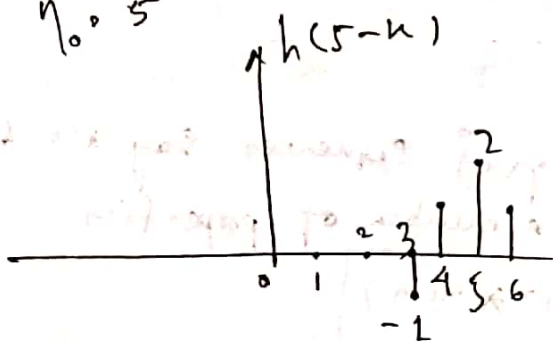 η₀ = 5
h(5-k)
2
0 1 2 3 4 5 6
-1